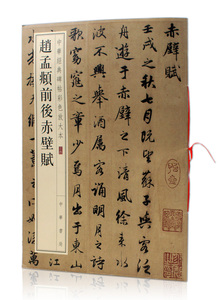 赤壁賦
壬戌之秋七月既望蘇子與客泛
舟遊于赤壁之下清風徐来水
波不興舉酒屬客誦明月之詩
歌窈窕之章少焉月出于東山
江
萬
中華經典碑帖彩色放大本
趙孟頫前後赤壁賦
中華書局